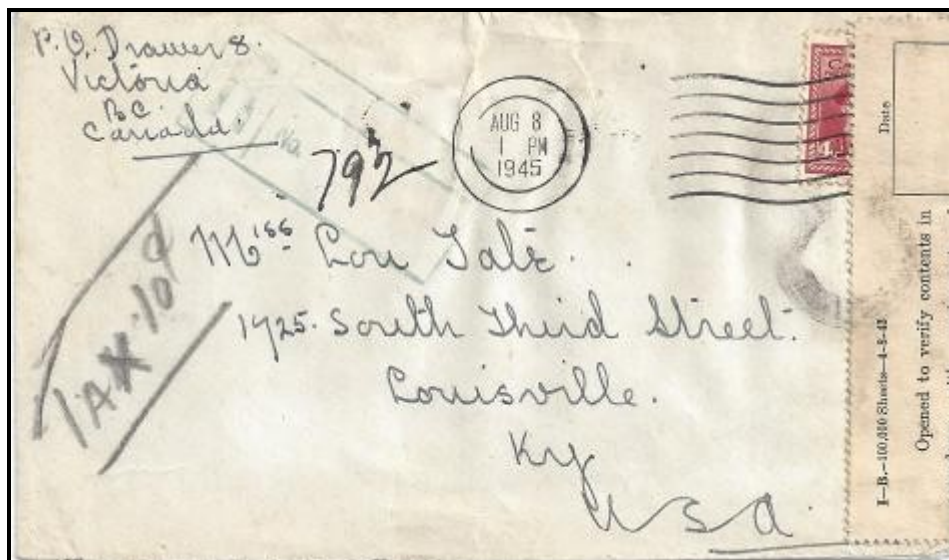 P.O. Drawer 8.
Victoria
B.C.
Canada.
No.
792
AUG 8
1 PM
1945
4
TAX 10¢
Miss Lou Tate.
1725. South Third Street.
Louisville.
Ky
USA.
Date
Opened to verify contents in
1—B.—100,000 Sheets—4-5-43